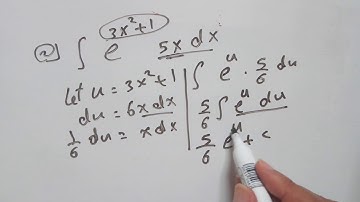 ② ∫ e^(3x²+1) 5x dx
Let u = 3x²+1
du = 6x dx
1/6 du = x dx
∫ e^u · 5/6 du
5/6 ∫ e^u du
5/6 e^u + c